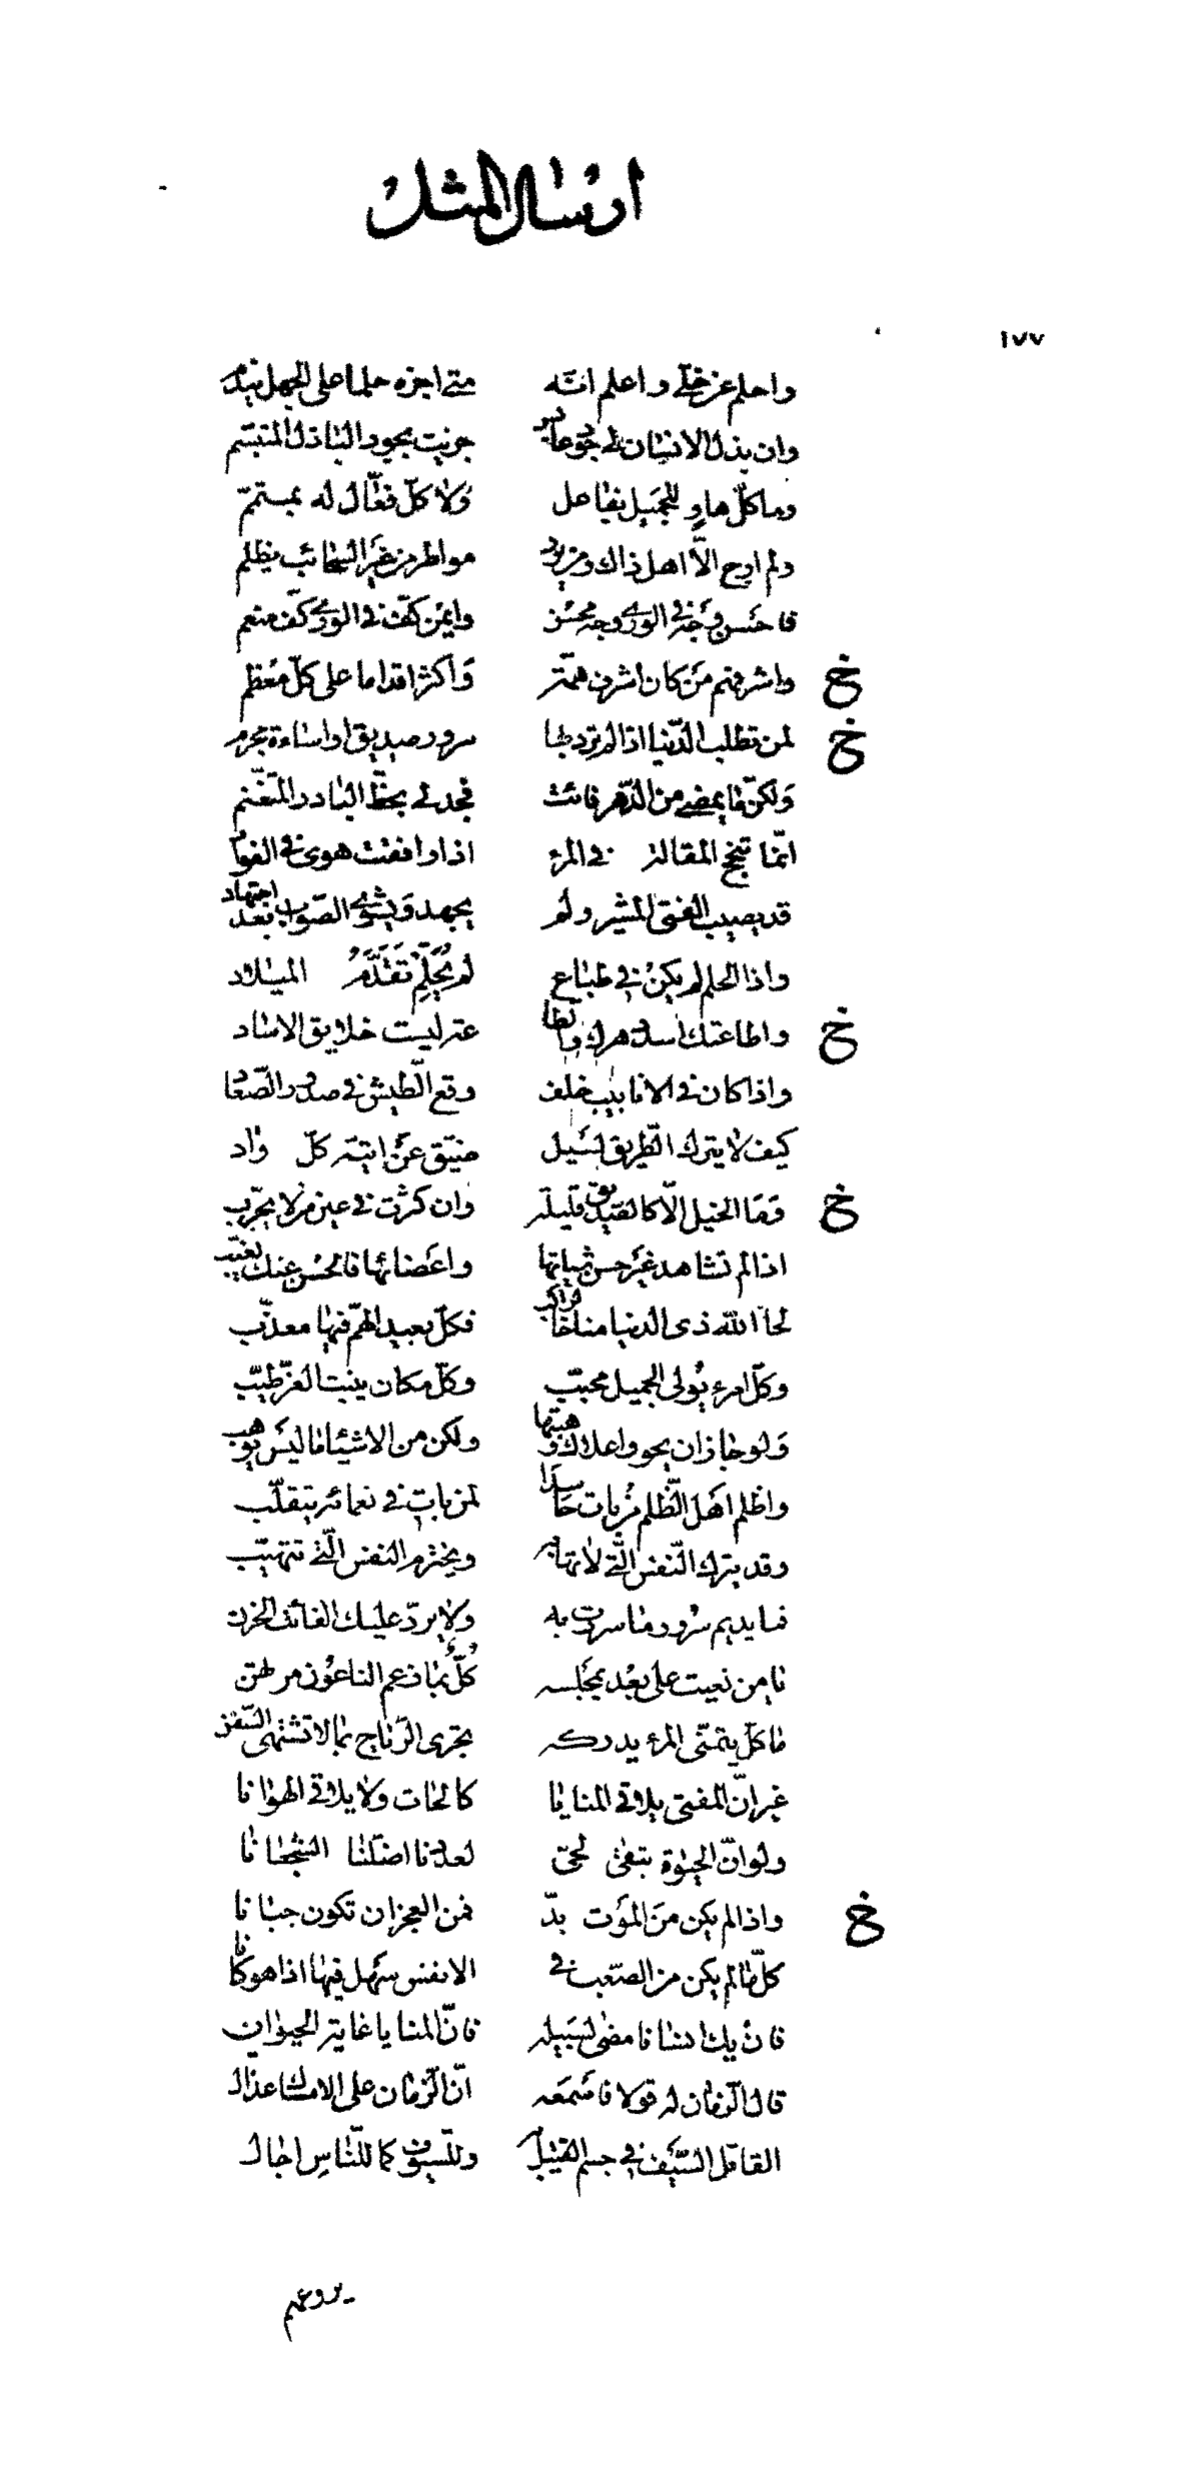 ارسال المثل
١٧٧
واحلم عن خلّي واعلم انّه متى اجزه حلما على الجهل يندم
وان بذل الانسان لي جود عابس جزيت بجود الباذل المتبسّم
وما كلّ هاوٍ للجميل بفاعل ولا كلّ فعّال له بمتمّم
ولم ارج الّا اهل ذاك ومن يرد مواطر من غير السحائب يظلم
فاحسن وجه في الورى وجه محسن وايمن كفّ في الورى كفّ منعم
خ واشرفهم من كان اشرف همّة واكثر اقداما على كلّ معظم
خ لمن تطلب الدّنيا اذا لم ترد بها سرور صديق او اساءة مجرم
ولكنّ ما يمضى من الدّهر فائت فجد لي بحظّ البادر المتغنّم
انّما تنجح المقالة في المرء اذا وافقت هوى في الفواد
قد يصيب الفتى المشير ولم يجهد ويشوى الصّواب بعد اجتهاد
واذا الحلم لم يكن في طباع لم يحلّم تقدّم الميلاد
خ واطاعتك اسد دهرك والطاعة ليست خلايق الاساد
واذا كان في الانابيب خلف وقع الطّيش في صدور الصّعاد
كيف لا يترك الطّريق لسيل ضيّق عن اتيّه كلّ واد
خ وما الخيل الّا كالصّديق قليلة وان كثرت في عين من لا يجرّب
اذا لم تشاهد غير حسن شياتها واعضائها فالحسن عنك مغيّب
لحا الله ذى الدنيا مناخا لراكب فكلّ بعيد الهمّ فيها معذّب
وكلّ امرء يولى الجميل محبّب وكلّ مكان ينبت العزّ طيّب
ولو جاز ان يحووا علاك وهبتها ولكن من الاشيا ما ليس يوهب
واظلم اهل الظّلم من بات حاسدا لمن بات في نعمائه يتقلّب
وقد يترك النّفس الّتي لا تهابه ويخترم النفس الّتي تتهيّب
فما يديم سرور ما سررت به ولا يردّ عليك الفائت الحزن
يا من نعيت على بعد بمجلسه كلّ بما زعم الناعون مرتهن
ما كلّ يتمنّى المرء يدركه تجرى الرّياح بما لا تشتهى السّفن
غير انّ الفتى يلاقى المنايا كالحات ولا يلاقى الهوانا
ولو انّ الحيوة تبقى لحىّ لعددنا اضلّنا الشّجعانا
خ واذا لم يكن من الموت بدّ فمن العجز ان تكون جبانا
كلّ ما لم يكن من الصّعب في الانفس سهل فيها اذا هو كانا
فان يك انسانا مضى لسبيله فانّ المنايا غاية الحيوان
قال الزمان له قولا فاسمعه انّ الزّمان على الامساك عذّال
القاتل السّيف في جسم القتيل به وللسيوف كما للنّاس اجال